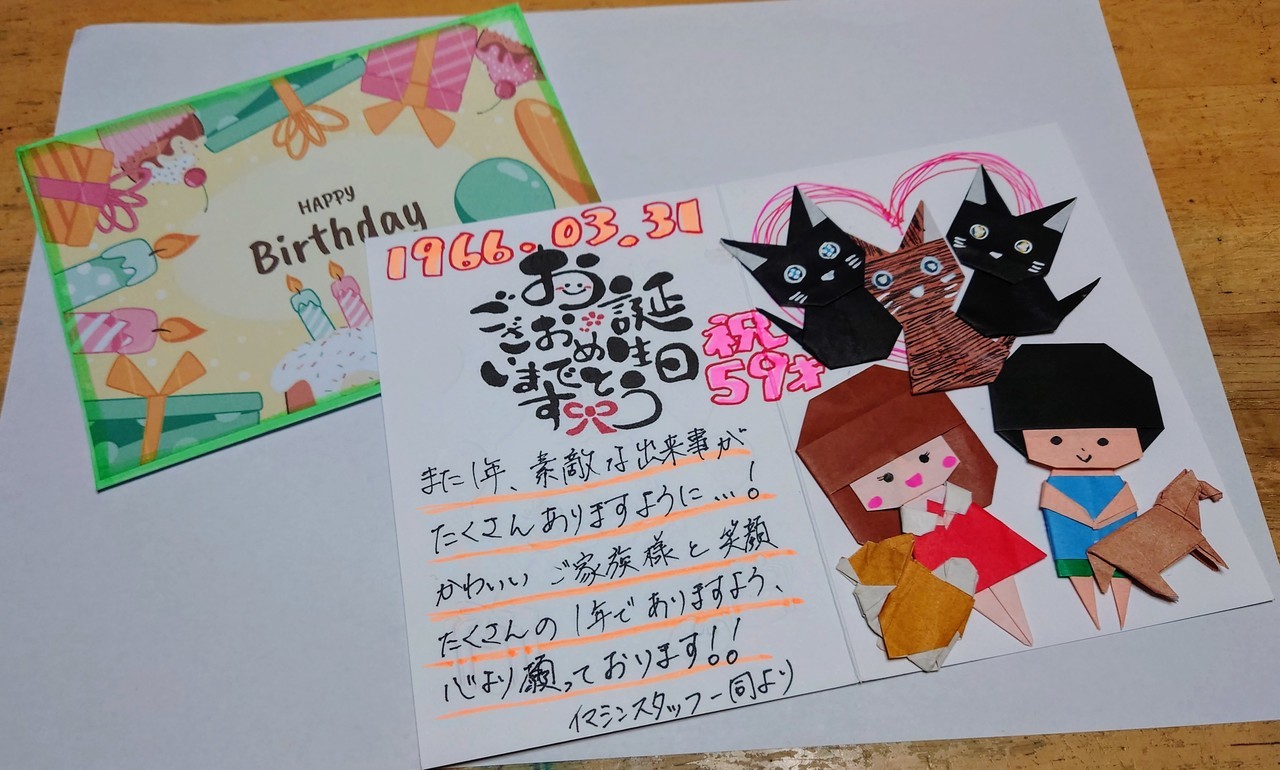 HAPPY
Birthday
1966.03.31
お誕生日
おめでとう
ございます
祝
59才
また1年、素敵な出来事が
たくさんありますように…!
かわいい ご家族様と笑顔
たくさんの1年でありますよう、
心より願っております!!
イマジンスタッフ一同より